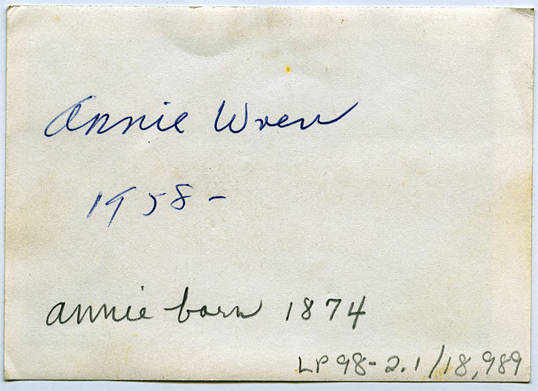 Annie Wren
1958-
annie born 1874
LP98-2.1/18,989